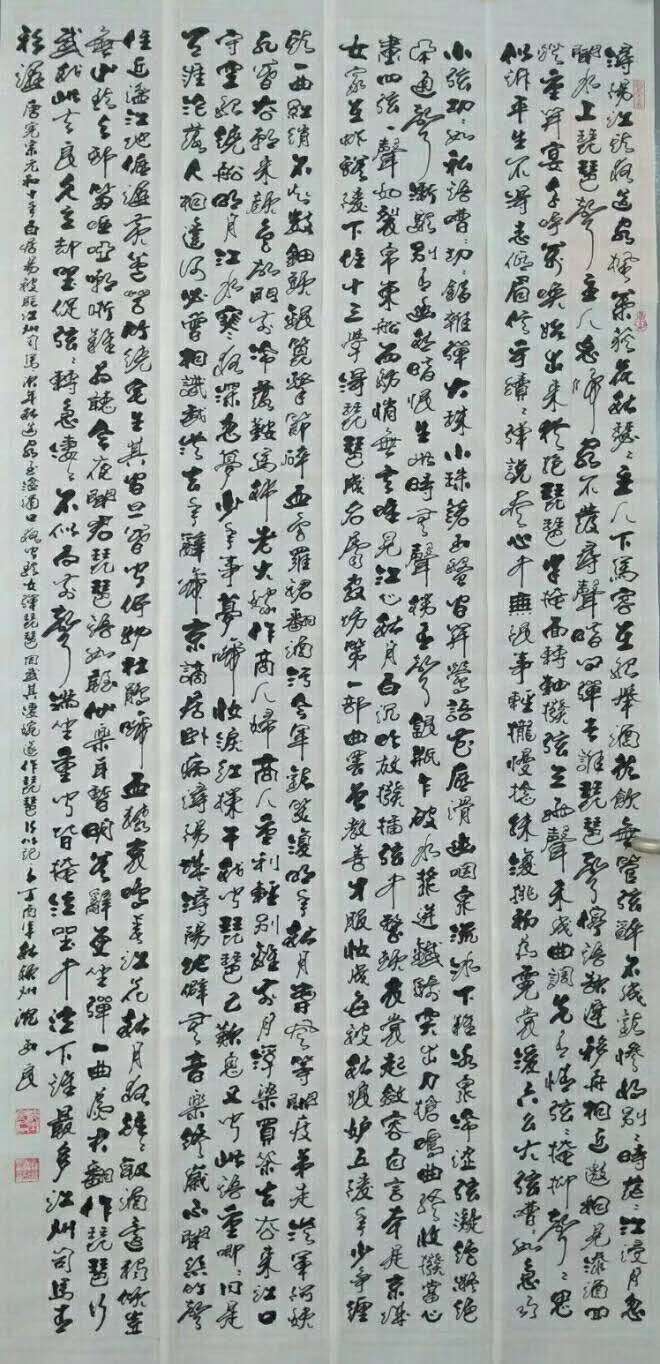 潯陽江頭夜送客楓葉荻花秋瑟瑟主人下馬客在船舉酒欲飲無管弦醉不成歡慘將別別時茫茫江浸月忽
聞水上琵琶聲主人忘歸客不發尋聲暗問彈者誰琵琶聲停語欲遲移船相近邀相見添酒回
燈重開宴千呼萬喚始出來猶抱琵琶半掩面轉軸撥弦三兩聲未成曲調先有情弦弦掩抑聲聲思
似訴平生不得志低眉信手續續彈說盡心中無限事輕攏慢捻抹復挑初為霓裳後六幺大弦嘈嘈如急雨
小弦切切如私語嘈嘈切切錯雜彈大珠小珠落玉盤間關鶯語花底滑幽咽泉流冰下難冰泉冷澀弦凝絕凝絕
不通聲漸歇別有幽愁暗恨生此時無聲勝有聲銀瓶乍破水漿迸鐵騎突出刀槍鳴曲終收撥當心
畫四弦一聲如裂帛東船西舫悄無言唯見江心秋月白沉吟放撥插弦中整頓衣裳起斂容自言本是京城
女家在蝦蟆陵下住十三學得琵琶成名屬教坊第一部曲罷曾教善才服妝成每被秋娘妒五陵年少爭纏
頭一曲紅綃不知數鈿頭銀篦擊節碎血色羅裙翻酒污今年歡笑復明年秋月春風等閑度弟走從軍阿姨
死暮去朝來顏色故門前冷落鞍馬稀老大嫁作商人婦商人重利輕別離前月浮梁買茶去去來江口
守空船繞船明月江水寒夜深忽夢少年事夢啼妝淚紅闌干我聞琵琶已歎息又聞此語重唧唧同是
天涯淪落人相逢何必曾相識我從去年辭帝京謫居臥病潯陽城潯陽地僻無音樂終歲不聞絲竹聲
住近湓江地低濕黃蘆苦竹繞宅生其間旦暮聞何物杜鵑啼血猿哀鳴春江花朝秋月夜往往取酒還獨傾豈
無山歌與村笛嘔啞嘲哳難為聽今夜聞君琵琶語如聽仙樂耳暫明莫辭更坐彈一曲為君翻作琵琶行
感我此言良久立卻坐促弦弦轉急淒淒不似向前聲滿坐重聞皆掩泣坐中泣下誰最多江州司馬青
衫濕 唐憲宗元和十年白居易被貶江州司馬次年秋送客至湓浦口夜聞歌女彈琵琶因感其淒婉遂作琵琶行以記之丁酉年秋徐州沈